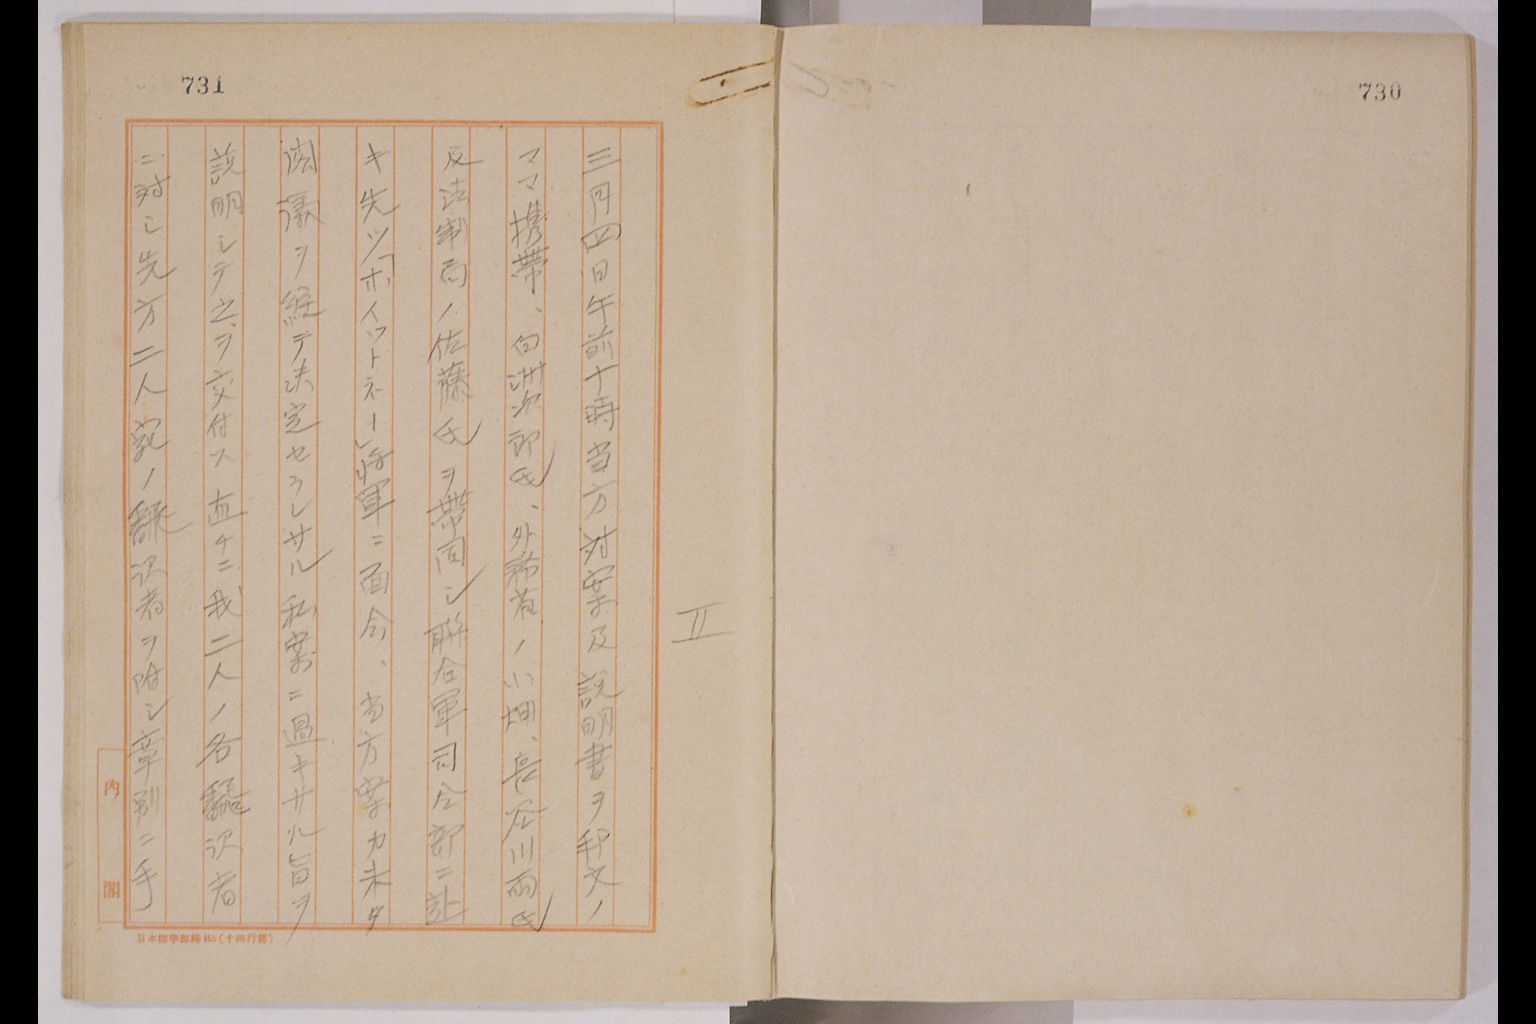 730
731
II
三月四日午前十時当方対案及説明書ヲ邦文ノ
ママ携帯、白洲次郎氏、外務省ノ小畑、長谷川両氏
及法制局ノ佐藤氏ヲ帯同シ聯合軍司令部ニ赴
キ先ツ「ホイットネー」将軍ニ面会、当方案カ未タ
閣議ヲ経テ決定セラレサル私案ニ過キサル旨ヲ
説明シテ之ヲ交付ス直チニ我二人ノ各飜訳者
ニ対シ先方二人宛ノ飜訳者ヲ附シ章別ニ手
内閣
日本標準規格B5(十四行罫)